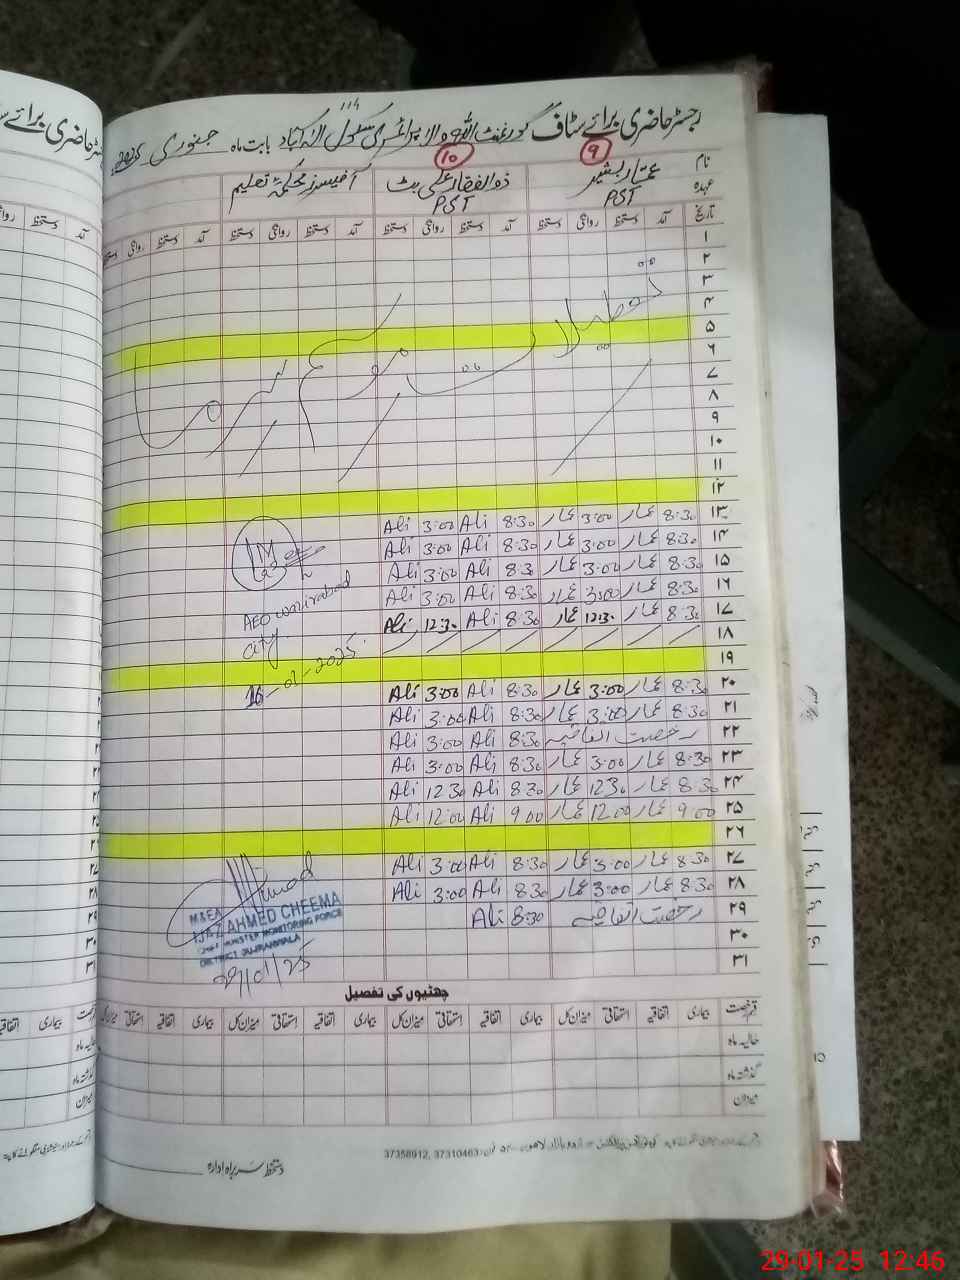 رجسٹر حاضری برائے سٹاف گورنمنٹ اللہ والا پرائمری سکول الہ آباد بابت ماہ جنوری 2025
9 10
نام عمار بشیر ذوالفقار علی بٹ آفیسرز محکمہ تعلیم
عہدہ PST PST
تاریخ آمد دستخط روانگی دستخط آمد دستخط روانگی دستخط آمد دستخط روانگی دستخط آمد دستخط روانگی دستخط
۱
۲
۳
۴
۵
۶
تعطیلات موسم سرما
۷
۸
۹
۱۰
۱۱
۱۲
۱۳ 8:30 عمار 3:00 عمار 8:30 Ali 3:00 Ali
۱۴ 8:30 عمار 3:00 عمار 8:30 Ali 3:00 Ali
۱۵ 8:30 عمار 3:00 عمار 8:30 Ali 3:00 Ali
۱۶ 8:30 عمار 3:00 عمار 8:30 Ali 3:00 Ali
۱۷ 8:30 عمار 12:30 عمار 8:30 Ali 12:30 Ali
AEO wazirabad
city
16-01-2025
۱۸
۱۹
۲۰ 8:30 عمار 3:00 عمار 8:30 Ali 3:00 Ali
۲۱ 8:30 عمار 3:00 عمار 8:30 Ali 3:00 Ali
۲۲ رخصت اتفاقیہ 8:30 Ali 3:00 Ali
۲۳ 8:30 عمار 3:00 عمار 8:30 Ali 3:00 Ali
۲۴ 8:30 عمار 12:30 عمار 8:30 Ali 12:30 Ali
۲۵ 9:00 عمار 12:00 عمار 9:00 Ali 12:00 Ali
۲۶
۲۷ 8:30 عمار 3:00 عمار 8:30 Ali 3:00 Ali
۲۸ 8:30 عمار 3:00 عمار 8:30 Ali 3:00 Ali
۲۹ رخصت اتفاقیہ 8:30 Ali
۳۰
۳۱
M&EA
IJAZ AHMED CHEEMA
CHIEF MINISTER MONITORING FORCE
DISTRICT GUJRANWALA
29/01/25
چھٹیوں کی تفصیل
قسم رخصت بیماری اتفاقیہ استحقاقی میزان کل بیماری اتفاقیہ استحقاقی میزان کل بیماری اتفاقیہ استحقاقی میزان کل بیماری اتفاقیہ استحقاقی میزان کل
حالیہ ماہ
گذشتہ ماہ
میزان
37358912, 37310463
دستخط سربراہ ادارہ
29-01-25 12:46